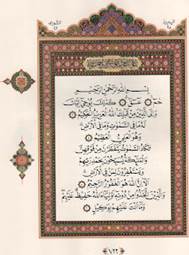 بِسْمِ اللَّهِ الرَّحْمَٰنِ الرَّحِيمِ
حمٓ ۝ عٓسٓقٓ ۝ كَذَٰلِكَ يُوحِىٓ إِلَيْكَ
وَإِلَى الَّذِينَ مِن قَبْلِكَ اللَّهُ الْعَزِيزُ الْحَكِيمُ ۝
لَهُ مَا فِى السَّمَٰوَٰتِ وَمَا فِى الْأَرْضِ
وَهُوَ الْعَلِىُّ الْعَظِيمُ ۝
تَكَادُ السَّمَٰوَٰتُ يَتَفَطَّرْنَ مِن فَوْقِهِنَّ
وَالْمَلَٰٓئِكَةُ يُسَبِّحُونَ بِحَمْدِ رَبِّهِمْ
وَيَسْتَغْفِرُونَ لِمَن فِى الْأَرْضِ
أَلَآ إِنَّ اللَّهَ هُوَ الْغَفُورُ الرَّحِيمُ ۝
وَالَّذِينَ اتَّخَذُوا مِن دُونِهِۦٓ أَوْلِيَآءَ اللَّهُ حَفِيظٌ عَلَيْهِمْ
وَمَآ أَنتَ عَلَيْهِم بِوَكِيلٍ ۝